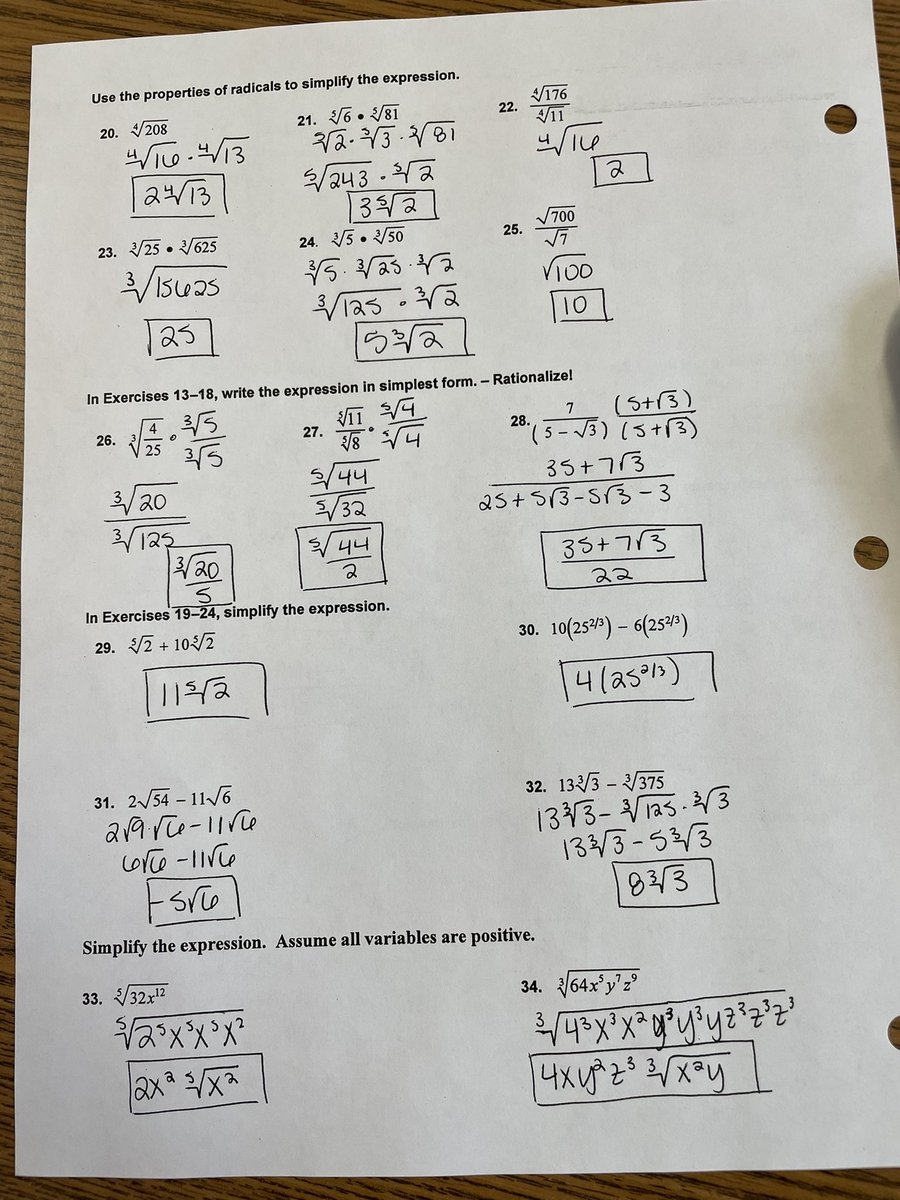 Use the properties of radicals to simplify the expression.
20. ∜208
∜16 · ∜13
2∜13
21. ⁵√6 • ⁵√81
⁵√2 · ⁵√3 · ⁵√81
⁵√243 · ⁵√2
3⁵√2
22. ∜176 / ∜11
∜16
2
23. ∛25 • ∛625
∛15625
25
24. ∛5 • ∛50
∛5 · ∛25 · ∛2
∛125 · ∛2
5∛2
25. √700 / √7
√100
10
In Exercises 13–18, write the expression in simplest form. – Rationalize!
26. ∛(4/25) · ∛5 / ∛5
∛20 / ∛125
∛20 / 5
27. ⁵√11 / ⁵√8 · ⁵√4 / ⁵√4
⁵√44 / ⁵√32
⁵√44 / 2
28. 7 / (5 − √3) (5+√3) / (5+√3)
35 + 7√3 / 25 + 5√3 − 5√3 − 3
35 + 7√3 / 22
In Exercises 19–24, simplify the expression.
29. ⁵√2 + 10⁵√2
11⁵√2
30. 10(25^2/3) − 6(25^2/3)
4(25^2/3)
31. 2√54 − 11√6
2√9·√6 − 11√6
6√6 − 11√6
−5√6
32. 13∛3 − ∛375
13∛3 − ∛125 · ∛3
13∛3 − 5∛3
8∛3
Simplify the expression. Assume all variables are positive.
33. ⁵√32x¹²
⁵√2⁵x⁵x⁵x²
2x² ⁵√x²
34. ∛64x⁵y⁷z⁹
∛4³x³x²y³y³yz³z³z³
4xy²z³ ∛x²y